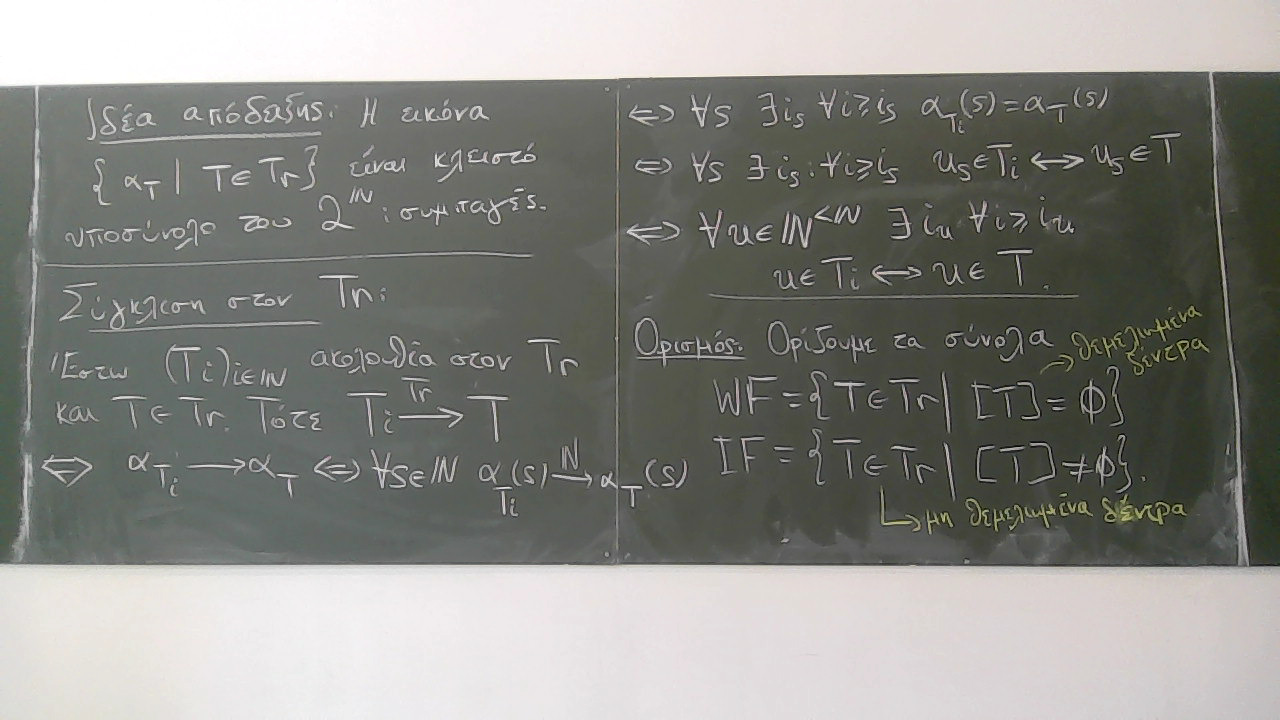 Ιδέα απόδειξης: Η εικόνα
{ α_T | T ∈ Tr } είναι κλειστό
υποσύνολο του 2^ℕ : συμπαγές.
Σύγκλιση στον Tr:
Έστω (T_i)_{i∈ℕ} ακολουθία στον Tr
και T ∈ Tr. Τότε T_i \xrightarrow{Tr} T
⇔ α_{T_i} → α_T ⇔ ∀s∈ℕ α_{T_i}(s) \xrightarrow{ℕ} α_T(s)
⇔ ∀s ∃i_s ∀i≥i_s α_{T_i}(s) = α_T(s)
⇔ ∀s ∃i_s : ∀i≥i_s u_s∈T_i ⟷ u_s∈T
⇔ ∀u∈ℕ^{<ℕ} ∃i_u ∀i≥i_u
u∈T_i ⟷ u∈T.
Ορισμός: Ορίζουμε τα σύνολα
→ θεμελιωμένα
δέντρα
WF = {T∈Tr | [T] = ∅}
IF = {T∈Tr | [T] ≠ ∅}.
↳ μη θεμελιωμένα δέντρα